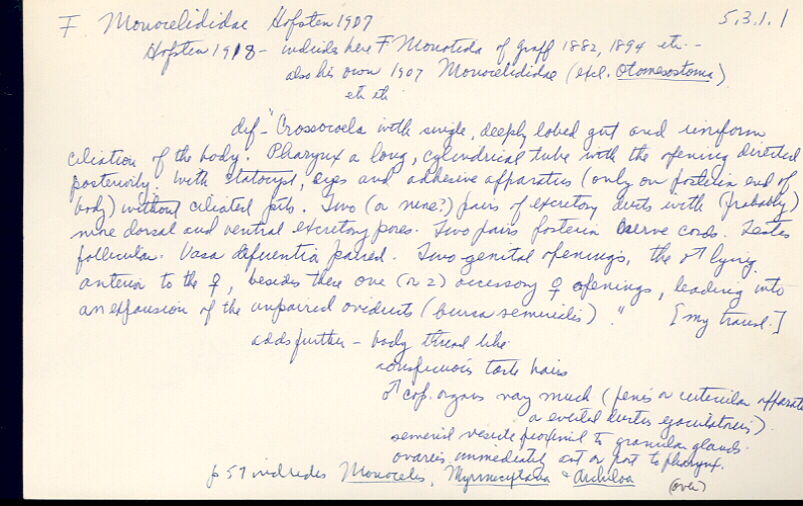 F Monocelididae Hofsten 1907 5.3.1.1
Hofsten 1918 - includes here F Monotida of Graff 1882, 1894 etc. -
also his own 1907 Monocelididae (excl. Otomesostoma)
etc etc
def - "Crossocoela with single, deeply lobed gut and uniform
ciliation of the body. Pharynx a long, cylindrical tube with the opening directed
posteriorly. With statocyst, eyes and adhesive apparatus (only on posterior end of
body) without ciliated pits. Two (or more?) pairs of excretory ducts with (probably)
more dorsal and ventral excretory pores. Two pairs posterior nerve cords. Testes
follicular. Vasa deferentia paired. Two genital openings, the ♂ lying
anterior to the ♀, besides there one (or 2) accessory ♀ openings, leading into
an expansion of the unpaired oviducts (bursa seminalis)." [my transl.]
adds further - body thread like
conspicuous tactile hairs
♂ cop. organs vary much (penis or cuticular apparat
or evertd ductus ejaculatorius).
seminal vesicle proximal to granular glands.
ovaries immediately ant or post to pharynx.
p 57 includes Monocelis, & Archiloa (over)